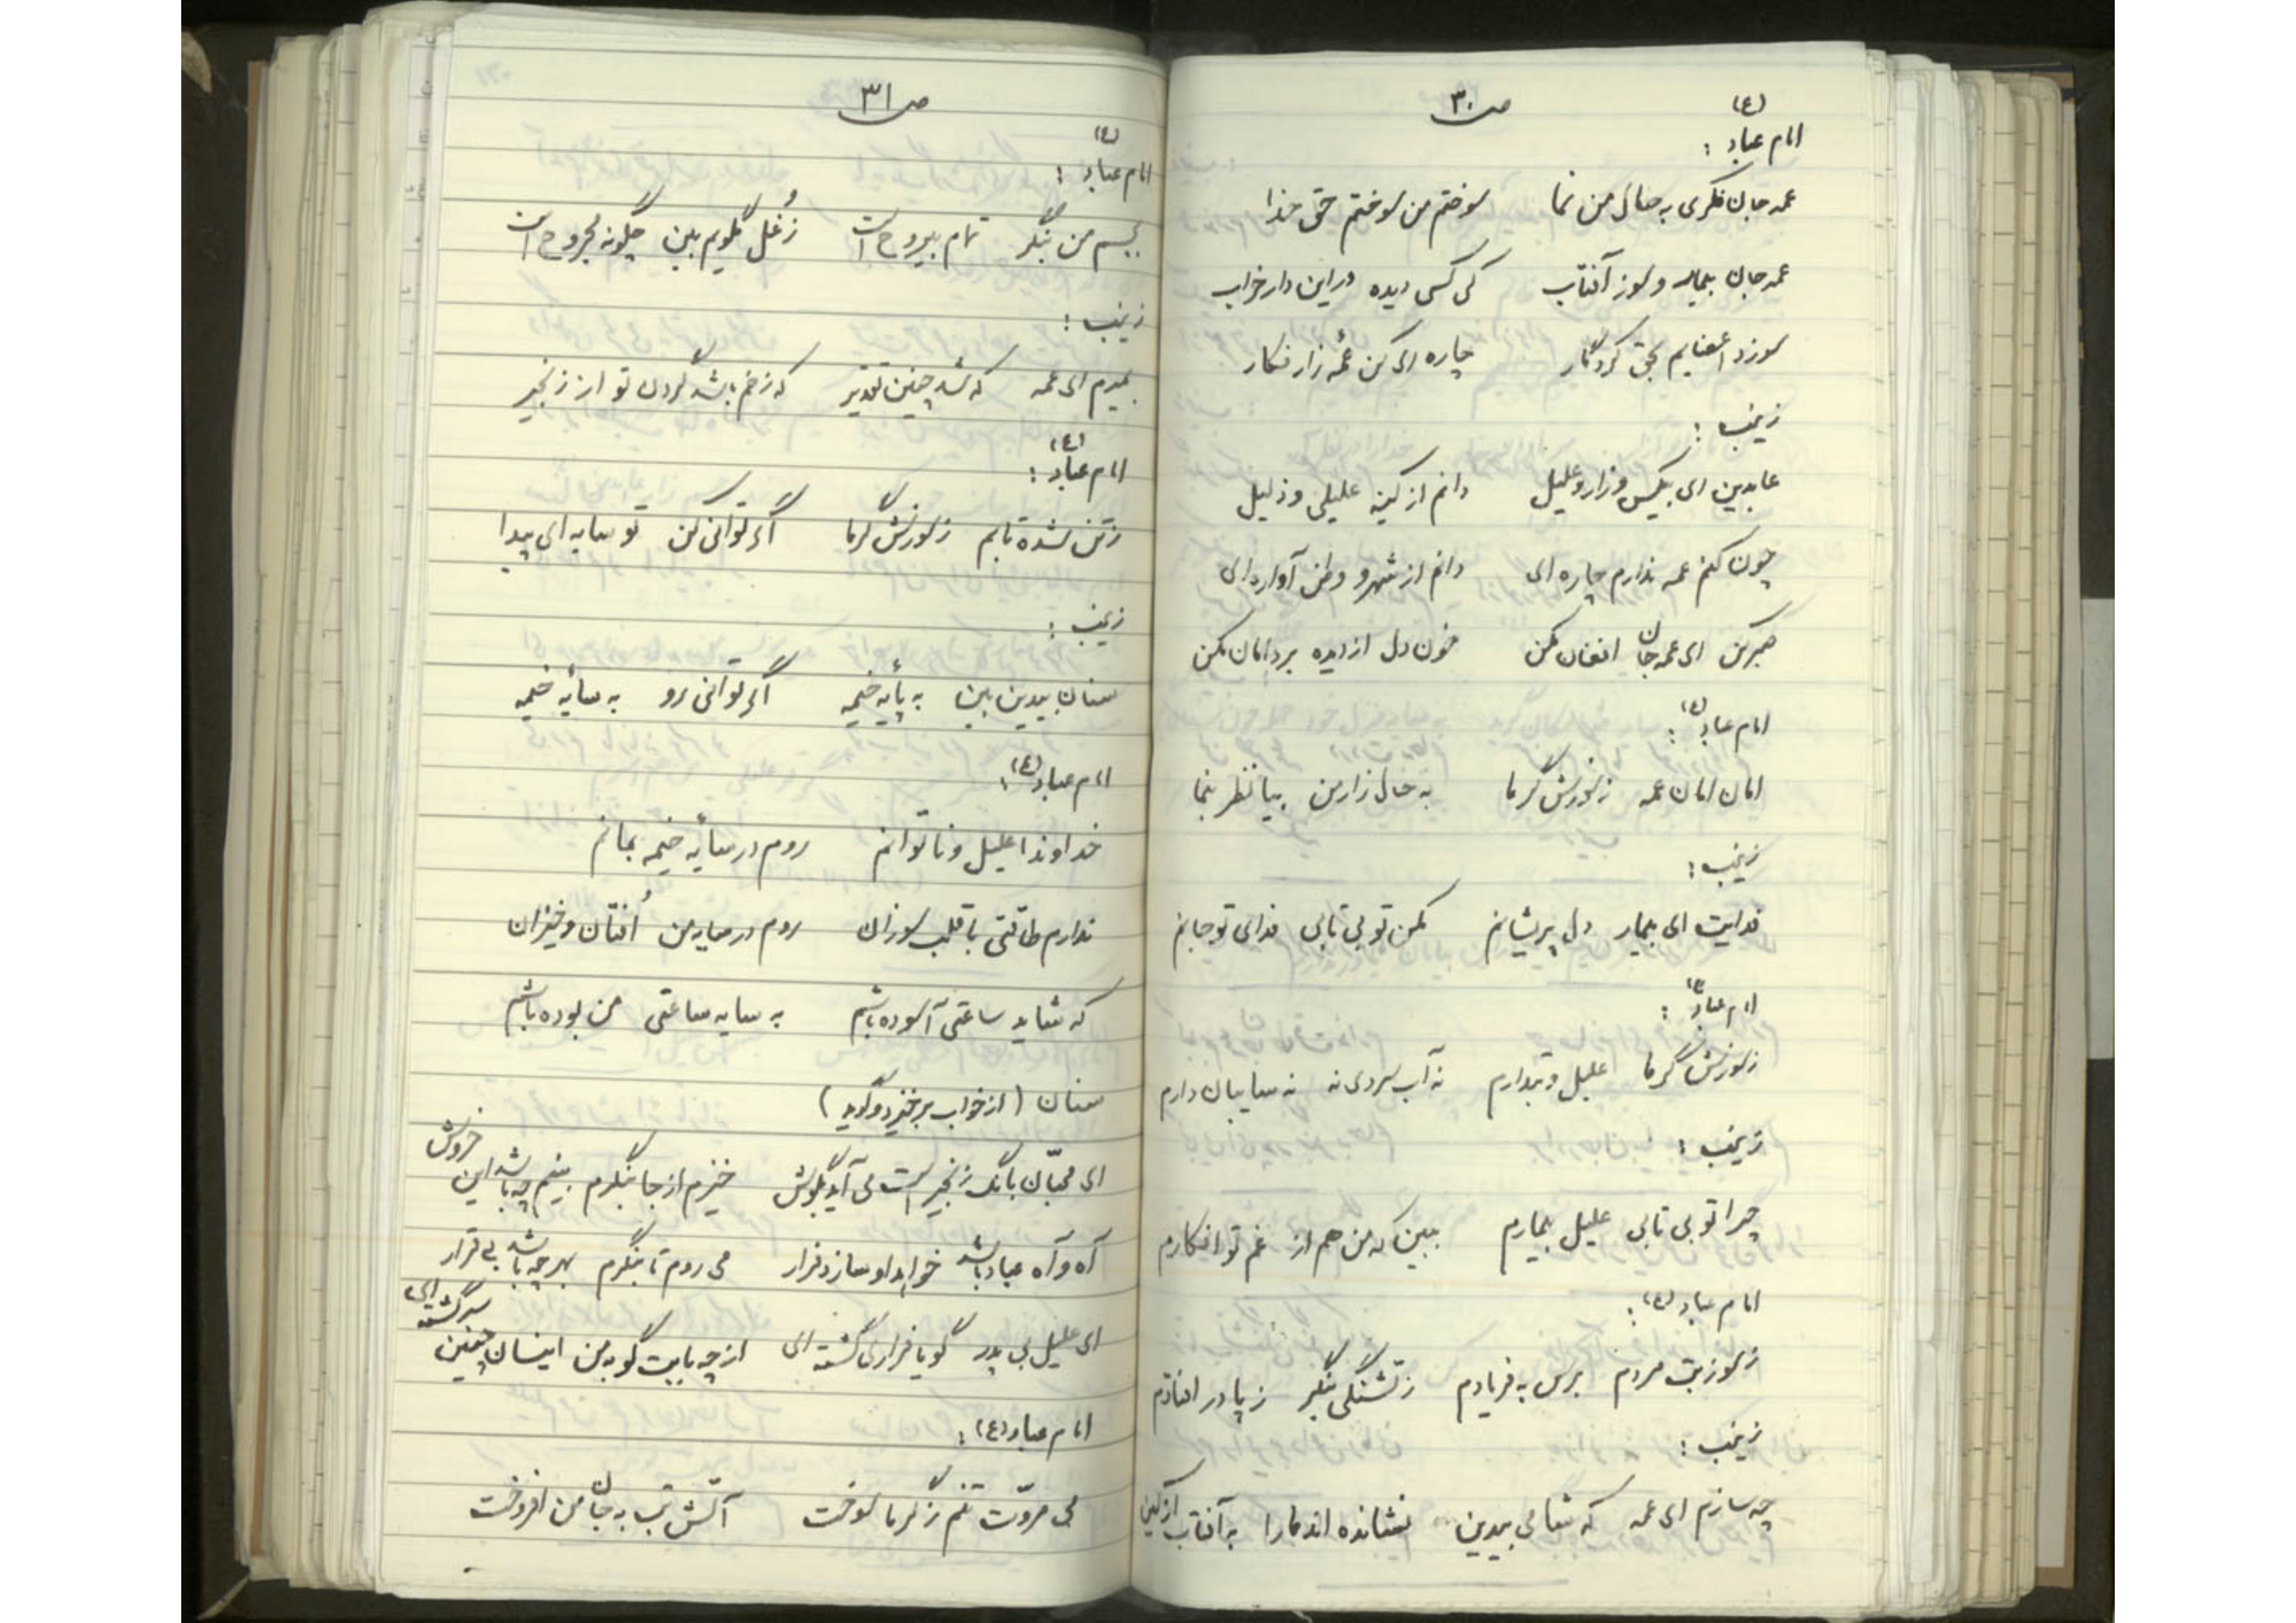 ص ۳۰
(ع)
امام عباد :
عمه جان فکری به حال من نما سوختم من سوختم حق خدا
عمه جان بیمار و سوز آفتاب کی کسی دیده در این دار خراب
سوزد اعضایم بحق کردگار چاره ای کن عمۀ زار فکار
زینب :
عابدین ای بیکس و زار و علیل دانم از کینه علیلی و ذلیل
چون کنم عمه ندارم چاره ای دانم از شهر و وطن آواره ای
صبر کن ای عمه جان افغان مکن خون دل از دیده بر دامان مکن
امام عباد (ع) :
امان امان عمه ز سوزش گرما به حال زار من بیا نظر بنما
زینب :
فدایت ای بیمار دل پریشانم مکن تو بی تابی فدای تو جانم
امام عباد (ع) :
ز سوزش گرما علیل و تبدارم نه آب سردی نه نه سایبان دارم
زینب :
چرا تو بی تابی علیل بیمارم ببین که من هم از غم تو افکارم
امام عباد (ع) :
ز سوز تب مردم برس به فریادم ز تشنگی بنگر ز پا در افتادم
زینب :
چه سازم ای عمه که شامی بیدین نشانده اند مارا به آفتاب از کین
ص ۳۱
(ع)
امام عباد :
بجسم من بنگر تمام بیروح است ز غُل گلویم ببین چگونه مجروح است
زینب :
بمیرم ای عمه که شد چنین تقدیر که زخم باشد گردن تو از زنجیر
(ع)
امام عباد :
ز تن شده تابم ز سوزش گرما اگر توانی کن تو سایه ای پیدا
زینب :
سنان بیدین بین به پأیه خیمه اگر توانی رو به سأیه خیمه
امام عباد (ع) :
خداوندا علیل و ناتوانم روم در سأیه خیمه بمانم
ندارم طاقتی با قلب سوزان روم در سایه من اُفتان و خیزان
که شاید ساعتی آسوده باشم به سایه ساعتی من بوده باشم
سنان (از خواب برخیزد و گوید)
ای محبّان بانگ زنجیر است می آید بگوش خیزم از جا بنگرم بینم چه باشد این خروش
آه و آه عباد باشد خواهد او سازد فرار می روم تا بنگرم بهر چه باشد بی قرار
ای علیل بی پدر گویا فراری گشته ای از چه بابیت گو به من اینسان چنین سرگشته ای
امام عباد (ع) :
بی مروّت تنم ز گرما سوخت آتش تب به جان من افروخت